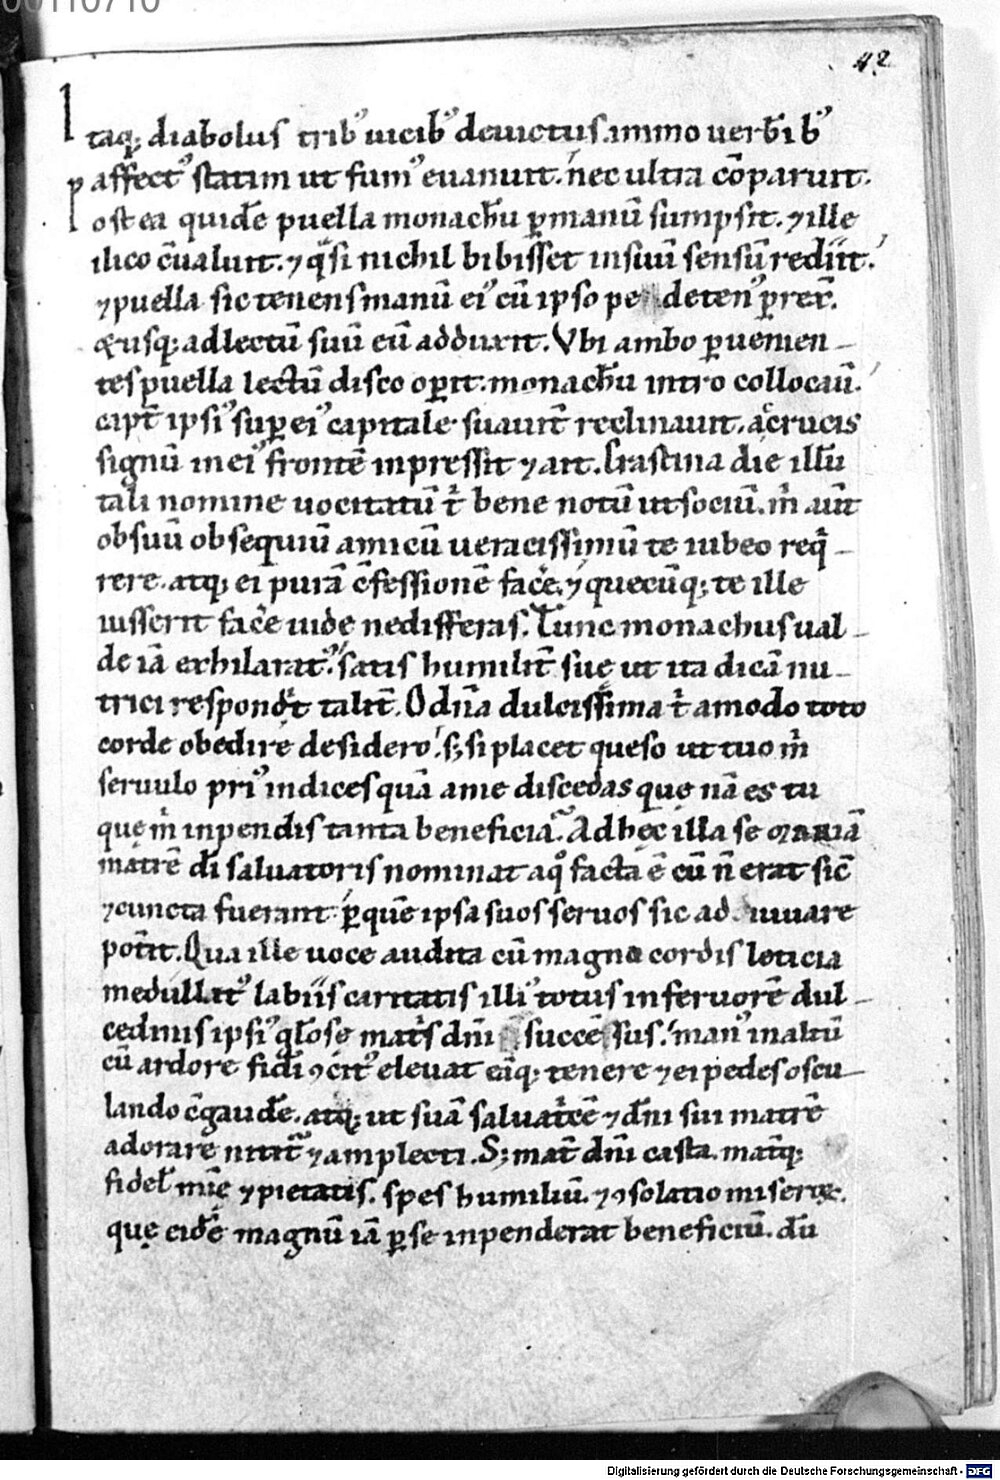 42
Itaq; diabolus trib᷒ uicib᷒ deuictus. immo uerb̄ib᷒
affect᷒ statim ut fum᷒ euanuit. nec ultra cōparuit.
Post ea quidē puella monachū ꝑmanū sumpsit. ⁊ ille
ilico c̄ualuit. ⁊ q̄si nichil bibisset insuū sensū rediit.
⁊ puella sic tenens manū ei᷒ cū ipso pe deten᷒
usq; ad lectū suū eū adduxit. Vbi ambo ꝑuenien-
tes puella lectū disco oꝑit. monachū intro collocauit.
capt̄ ipsi᷒ suꝑ ei᷒ capitale suauit̄ reclinauit. ac crucis
signū in ei᷒ frontē inpressit ⁊ ait. Crastina die illū
tali nomine uocitatū t̄ bene notū ut sociū. m̄ aut̄
ob suū obsequiū amicū ueracissimū te iubeo req̄-
rere. atq; ei purā c̄fessionē facē. ⁊ quecūq; te ille
iusserit facē uide ne differas. Tunc monachus ual-
de iā exhilarat᷒. satis humilit̄ suę ut ita dicā nu-
trici respondit talit̄. O dn̄a dulcissima t̄ amodo toto
corde obedire desidero. s; si placet queso ut tuo m̄
seruulo pri᷒ indices quā a me discedas quę nā es tu
quę m̄ inpendis tanta beneficia. Ad hęc illa se mariā
matrē dī saluatoris nominat a quo facta ē cū n̄ erat sic̄
⁊ cuncta fuerant ꝑ quē ipsa suos seruos sic adiuuare
potuit. Qua ille uoce audita cū magna cordis leticia
medullat᷒ labiis caritatis illi᷒ totus in feruorē dul-
cedinis ipsi᷒ gl̄ose mat̄s dn̄i succēsus. man᷒ in altū
cū ardore fidi ꝯcit᷒ eleuat eāq; tenere ⁊ ei pedes oscu-
lando c̄gaudē. atq; ut suā saluat̄cē ⁊ dn̄i sui matrē
adorare nitit᷒ ⁊ amplecti. S; mat̄ dn̄i casta. mat̄q;
fidel̄ mīe ⁊ pietatis. spes humiliū. ⁊ ꝯsolatio miseroꝝ.
quę eidē magnū iā ꝑ se inpenderat beneficiū. dū
Digitalisierung gefördert durch die Deutsche Forschungsgemeinschaft - DFG